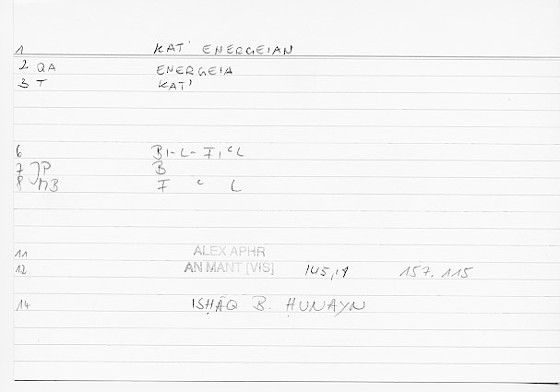 1 KAT' ENERGEIAN
2 QA ENERGEIA
3 T KAT'
6 BI-L-FIʿL
7 JP B
8 MB F ʿ L
11 ALEX APHR
12 AN MANT [VIS] 145,19 157.115
14 ISḤĀQ B. ḤUNAYN